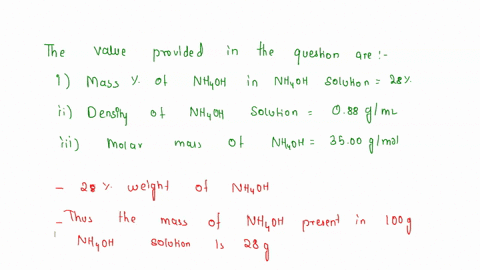 The value provided in the question are :-
i) Mass % of NH4OH in NH4OH solution = 28%
ii) Density of NH4OH solution = 0.88 g/mL
iii) Molar mass of NH4OH = 35.00 g/mol
- 28 % weight of NH4OH
- Thus the mass of NH4OH present in 100g
NH4OH solution is 28g